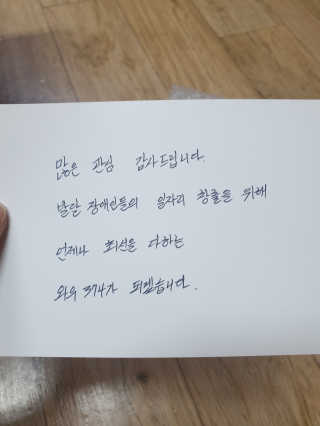 많은 관심 감사드립니다.
발달 장애인들의 일자리 창출을 위해
언제나 최선을 다하는
와우374가 되겠습니다.